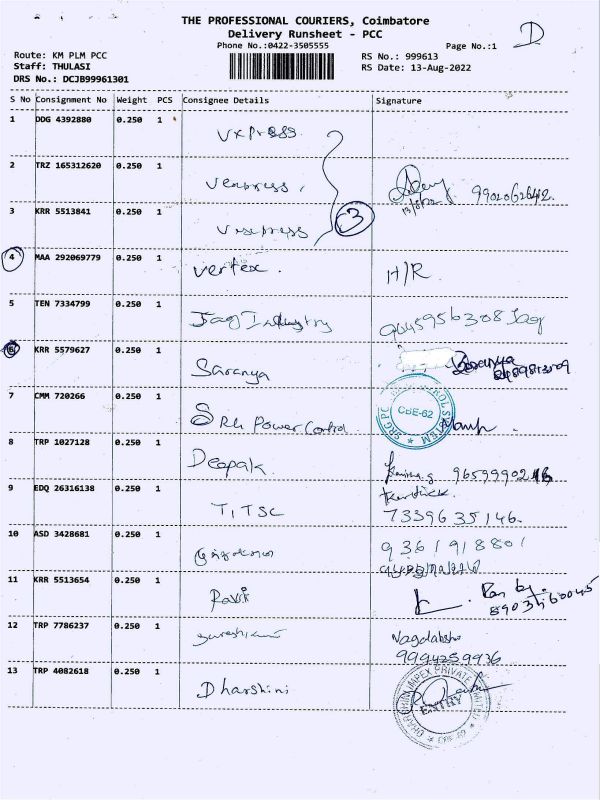 THE PROFESSIONAL COURIERS, Coimbatore
Delivery Runsheet - PCC
Phone No.:0422-3505555
Page No.:1
D
Route: KM PLM PCC
Staff: THULASI
DRS No.: DCJB99961301
RS No.: 999613
RS Date: 13-Aug-2022
S No Consignment No Weight PCS Consignee Details Signature
1 DDG 4392880 0.250 1
Vxpress.
2 TRZ 165312620 0.250 1
13/8/22
3 KRR 5513841 0.250 1
3
4 MAA 292069779 0.250 1
Vertex. H/R.
5 TEN 7334799 0.250 1
Jag Industry 9645956308 Jag
6 KRR 5579627 0.250 1
Saranya Saranya
7 CMM 720266 0.250 1
CBE-62
SRG Power Control
8 TRP 1027128 0.250 1
Deepak
9 EDQ 26316138 0.250 1
Karthick.
TITSC 7339635146.
10 ASD 3428681 0.250 1
9361918801
11 KRR 5513654 0.250 1
8903460045
12 TRP 7786237 0.250 1
9994259936
13 TRP 4082618 0.250 1
Dharshini
DHARSHINI IMPEX PRIVATE LIMITED
ENTRY